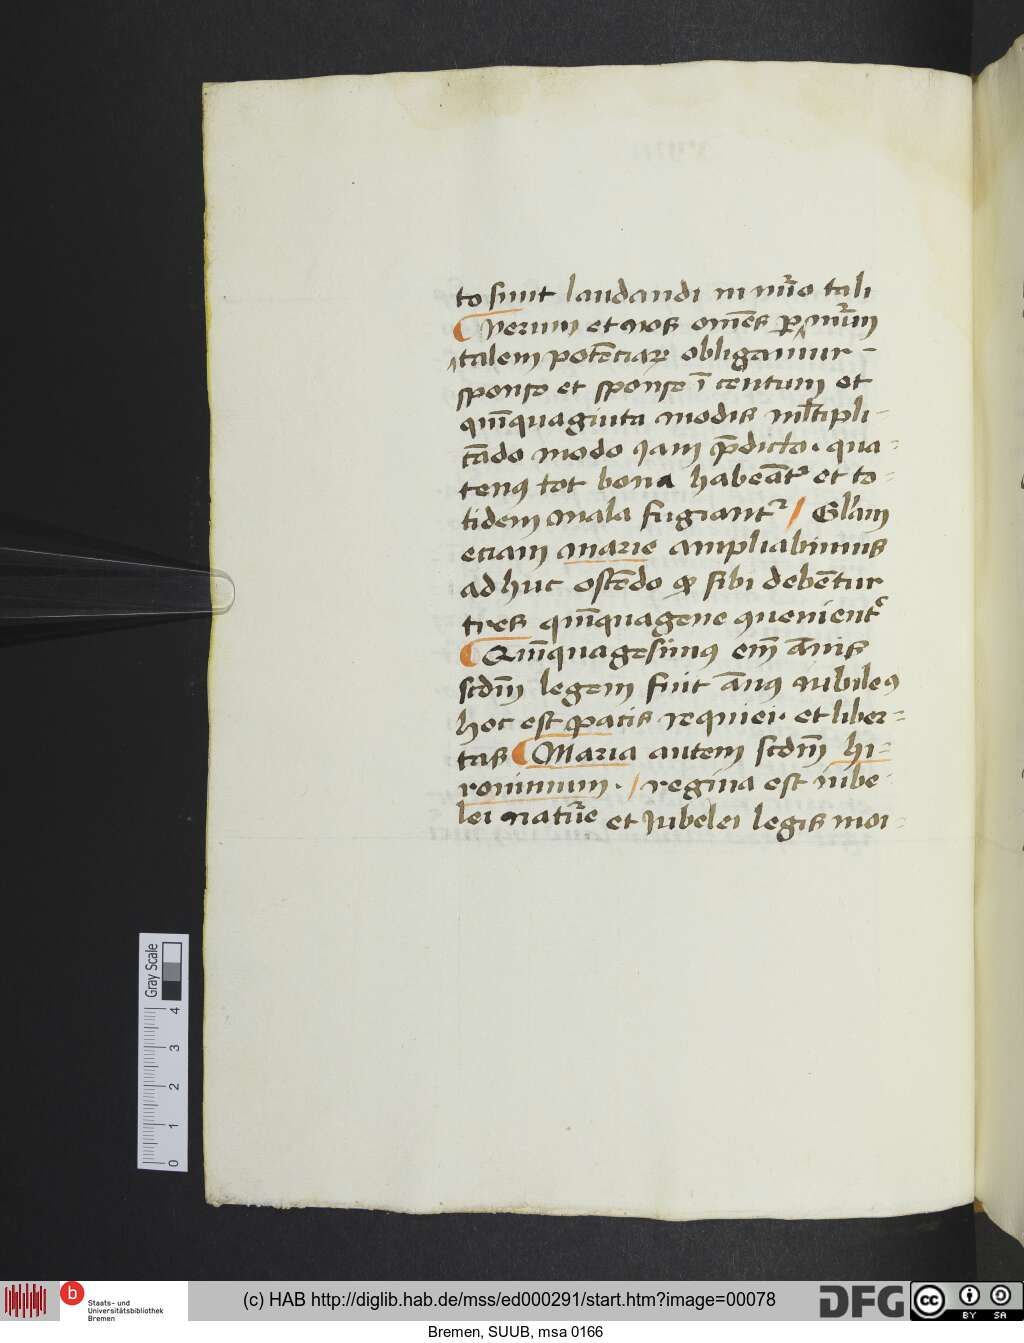 to sunt laudandi in nūo tali
Verum et nos om̄es ꝑ nūm
talem potēciaꝝ obligamur -
sponso et sponse ī centum et
quīquaginta modis ml̄tipli-
cādo modo iam p̄dicto. qua-
tenꝰ tot bona habeāt᷑ et to-
tidem mala fugiant᷑ / Gl'am
eciam marie ampliabimus
ad huc ostēdo ꝙ sibi debētur
tres quīquagene ꝯuenient᷑
Quīquagesimꝰ em̄ ānis
scdm̄ legem fuit ānꝰ iubileꝰ
hoc est pacis requiei. et liber-
tas Maria autem scdm̄ hi-
ronimum. / regina est iube-
lei natu᷑e et Jubelei legis moi-
Gray Scale
4
3
2
1
0
b
Staats- und
Universitätsbibliothek
Bremen
(c) HAB http://diglib.hab.de/mss/ed000291/start.htm?image=00078
DFG
cc
BY SA
Bremen, SUUB, msa 0166